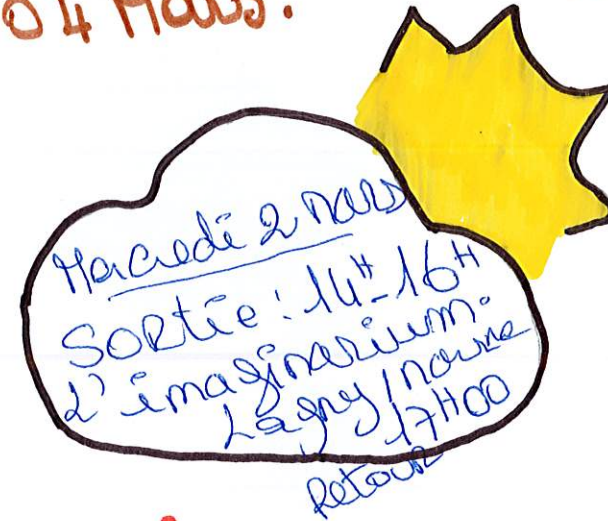 04 Mars.
Mercredi 2 Mars
SORtie : 14H-16H
L'imaginarium.
Lagny/marne
17H00
Retour